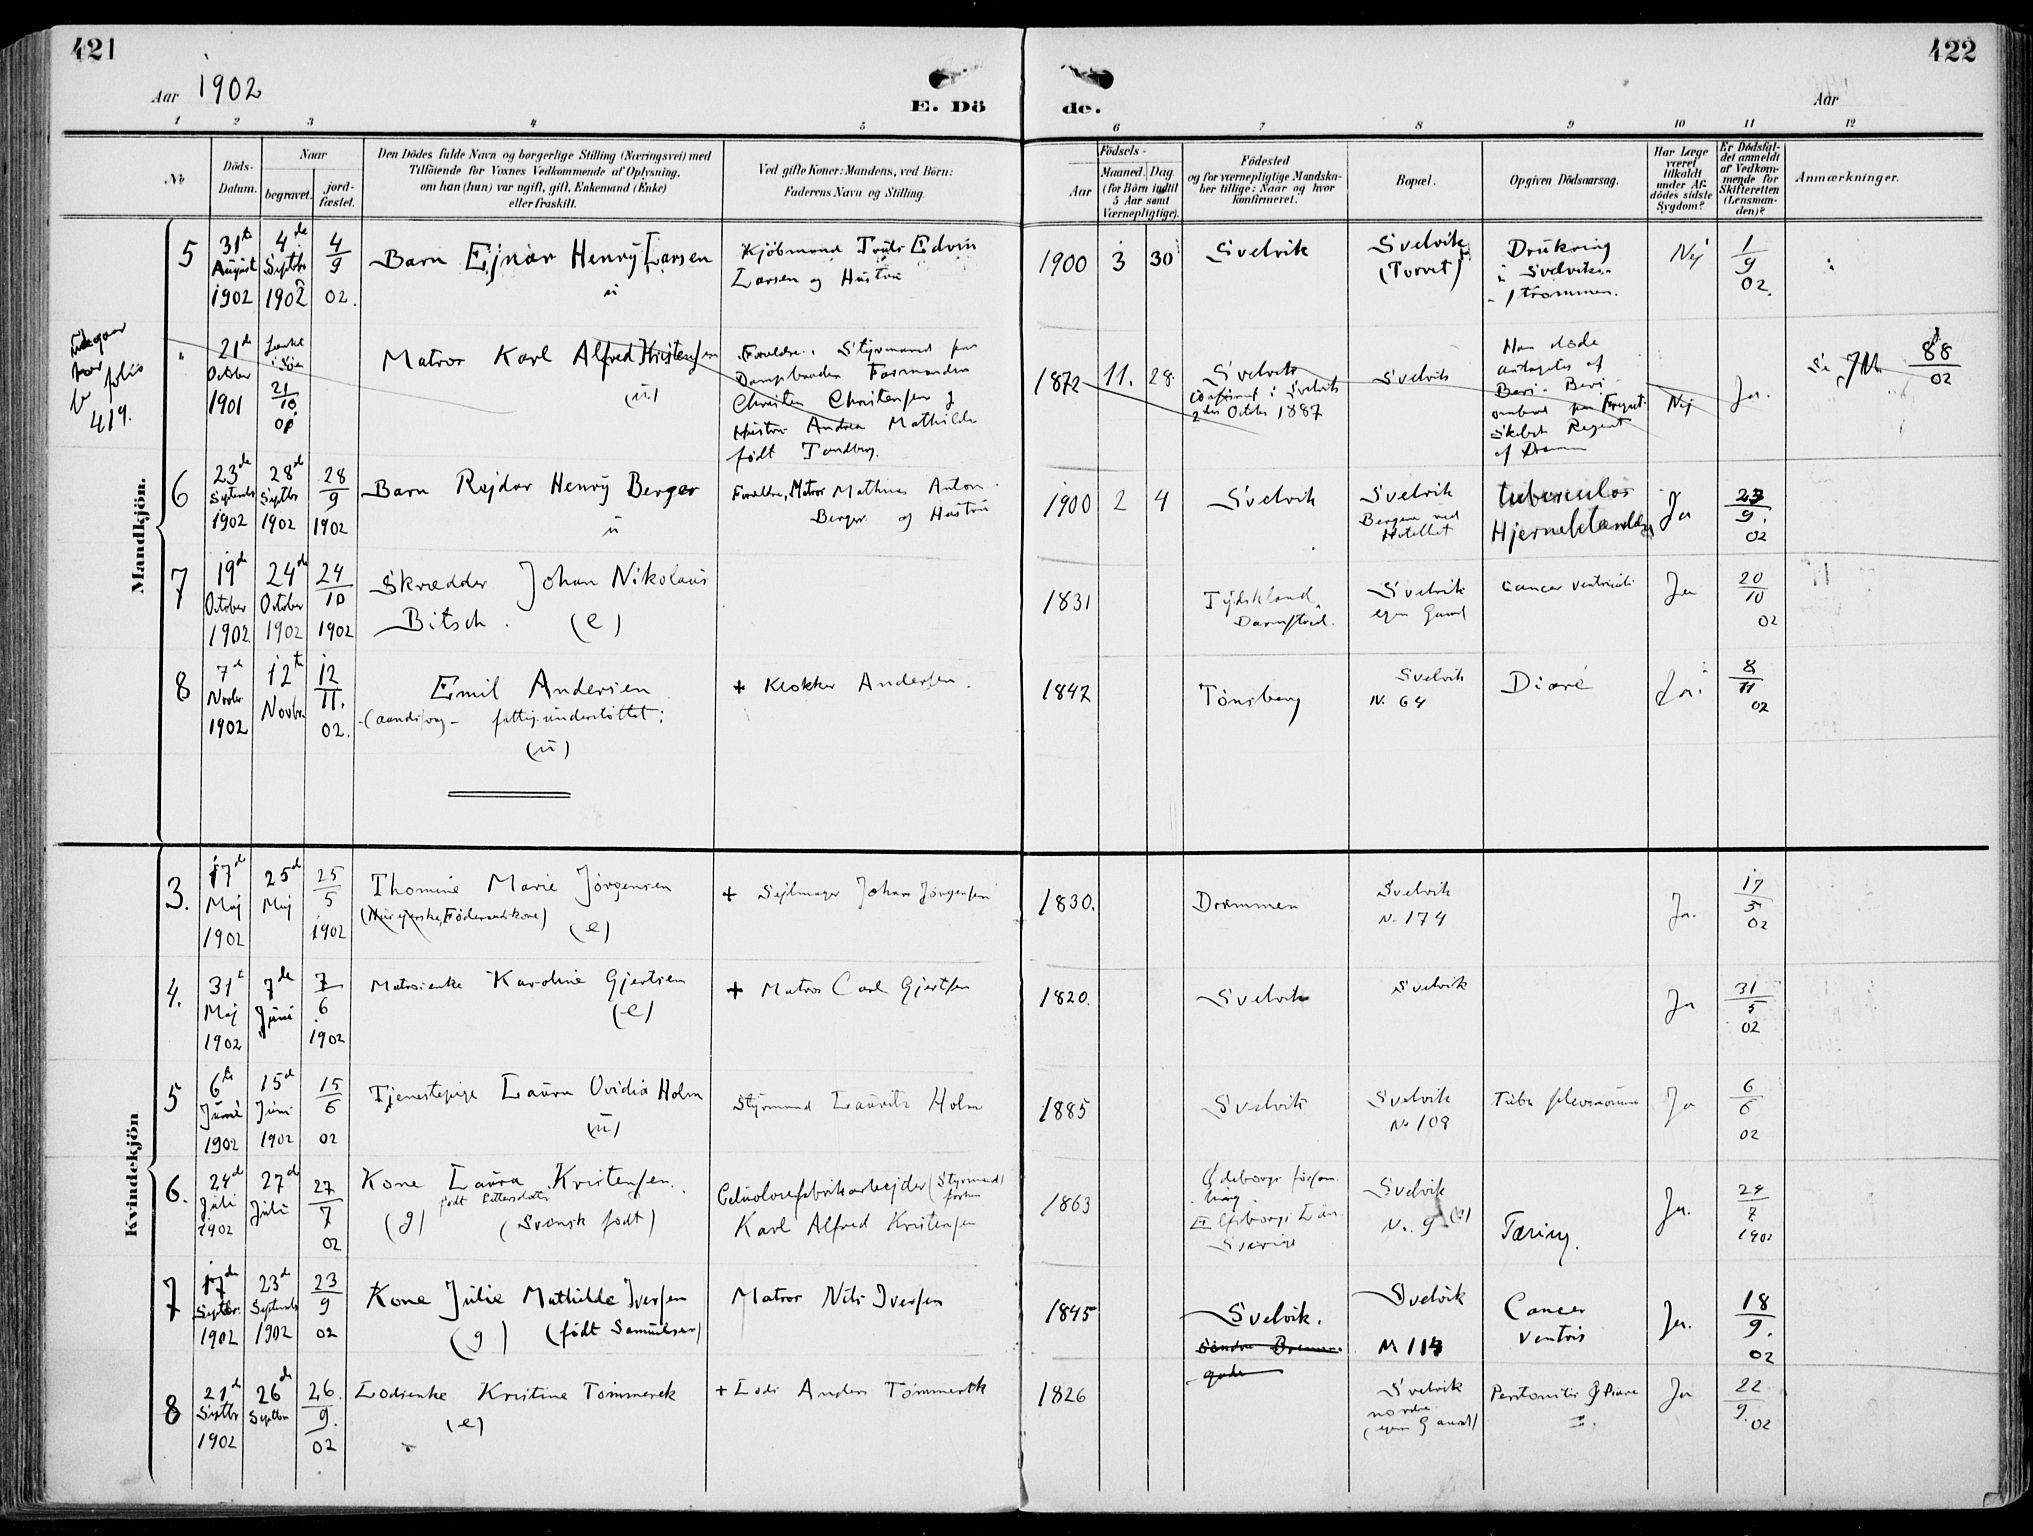 421
Aar 1902
E. Dö
de.
Aar
422
1 2 3 4 5 6 7 8 9 10 11 12
No
Döds-Datum.
Naar
begravet.
jord-fæstet.
Den Dödes fulde Navn og borgerlige Stilling (Næringsvei) med
Tilföiende for Voxnes Vedkommende af Oplysning,
om han (hun) var ugift, gift, Enkemand (Enke)
eller fraskilt.
Ved gifte Koner: Mandens, ved Börn:
Faderens Navn og Stilling.
Födsels-
Aar
Maaned. Dag.
(for Börn indtil
5 Aar samt
Værnepligtige).
Födested
og for værnepligtige Mandska-
ber tillige: Naar og hvor
konfirmeret.
Bopæl.
Opgiven Dödsaarsag.
Har Læge
været
tilkaldt
under Af-
dödes sidste
Sygdom?
Er Dödsfal-
det anmeldt
af Vedkom-
mende for
Skifteretten
(Lensman-
den)?
Anmærkninger.
Mandkjön.
5
31te August 1902
4de Septbr 1902
4/9 02.
Barn Ejnar Henry Larsen
u
Kjöbmand Truls Edvin
Larsen og Hustru
1900 3 30
Svelvik
Svelvik
(Torvet)
Drukning
i Svelviks-
strömmen.
Nej
1/9 02.
folio
419.
"
21de October 1901
21/10 01
Matros Karl Alfred Kristensen
(u)
Forældre: Styrmand paa
Dampbaaden Formanden
Christen Christensen og
Hustru Andrea Mathilde
født Tandberg.
1872 11. 28
Svelvik
confirmert i Svelvik
2den Octbr 1887
Svelvik
Han døde
antagelig af
Beri-Beri
ombord paa Fregat-
Skibet Regent
af Drammen
Nej
Ja.
Se JNr. 88/02
6
23de Septembr 1902
28de Septbr 1902
28/9 1902
Barn Rejdar Henry Berger
u
Forældre, Matros Mathias Anton
Berger og Hustru
1900 2 4
Svelvik
Svelvik
Bergene ved
Hotellet
tuberculos
Hjernebetændelse
Ja
23/9. 02
7
19de October 1902
24de October 1902
24/10 1902
Skrædder Johan Nikolaus
Bitsch. (e)
1831
Tydskland
Darmstad.
Svelvik
egen Gaard
Cancer ventriculi
Ja
20/10 02
8
7de Novbr 1902
12te Novbr.
12/11. 02.
Emil Andersen
(aandssvag - fattigunderstöttet:
(u)
+ Klokker Andersen.
1847
Tönsberg
Svelvik
N. 64
Diaré
Ja.
8/11 02
Kvindekjön
3.
17de Maj 1902
25de Maj
25/5 1902
Thomine Marie Jörgensen
Föderaadskone)
(e)
+ Sejlmager Johan Jörgensen
1830.
Drammen
Svelvik
N. 174
Ja.
17/5 02
4.
31te Maj 1902
7de Juni
7/6 1902
Matrosenke Karoline Gjertsen
(e)
+ Matros Carl Gjertsen
1820.
Svelvik
Svelvik
Ja
31/5 02
5
6te Juni 1902
15de Juni 1902
15/6 02
Tjenestepige Laura Ovidia Holm
(u)
Styrmand Lauritz Holm
1885
Svelvik
Svelvik
No 108
Ja
6/6 02
6.
24de Juli 1902
27de Juli
27/7 02
Kone Laura Kristensen.
født Pettersdatter
(g) (Svensk født)
Celulosefabrikarbejder (Styrmand
forhen
Karl Alfred Kristensen
1863
Ødeborgs forsam-
ling
Elfsborgs Län
Sverige
Svelvik
N. 9
Tæring.
Ja.
24/7. 1902
7
17de Septbr. 1902
23de Septembr 1902
23/9 02
Kone Julie Mathilde Iversen
(g) (født Samuelsen)
Matros Nils Iversen
1845
Svelvik.
Söndre Brenne-
gade
Svelvik
N 114
Cancer
Ventris
Ja.
18/9. 02
8
21de Septbr 1902
26de Septbr
26./9. 02
Lodsenke Kristine Tömmerek
(e)
+ Lods Anders Tömmerek
1826
Svelvik
nordre
(egen Gaard)
Peritonitis & Diare
Ja
22/9. 02